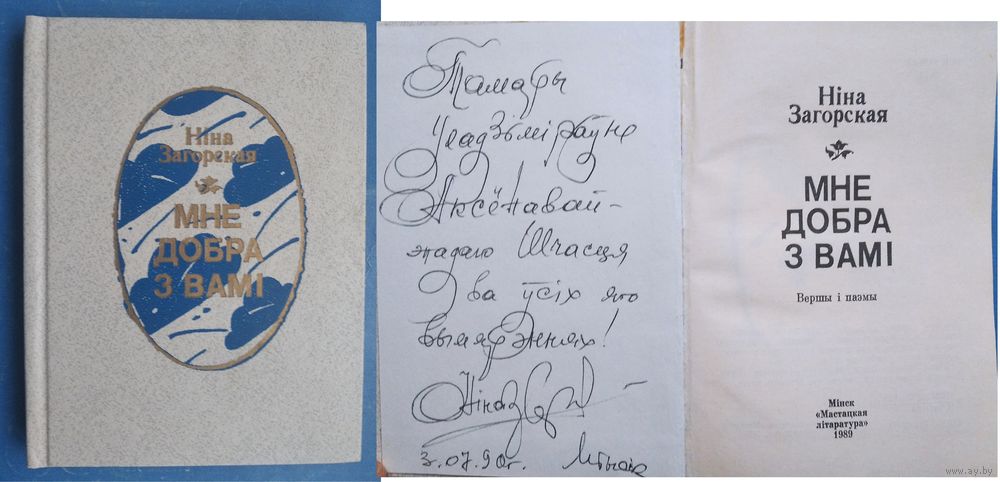 Ніна
Загорская
МНЕ
ДОБРА
З ВАМІ
Тамары
Уладзіміраўне
Аксёнавай –
жадаю Шчасця
ва ўсіх яго
вымярэннях!
Ніна
3.07.90г. Мінск
Ніна
Загорская
МНЕ
ДОБРА
З ВАМІ
Вершы і паэмы
Мінск
«Мастацкая
літаратура»
1989
www.ay.by